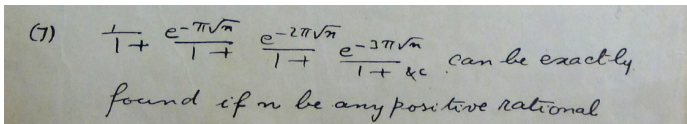 (7) 1/1+ e^{-π√n}/1+ e^{-2π√n}/1+ e^{-3π√n}/1+ &c can be exactly
found if n be any positive rational